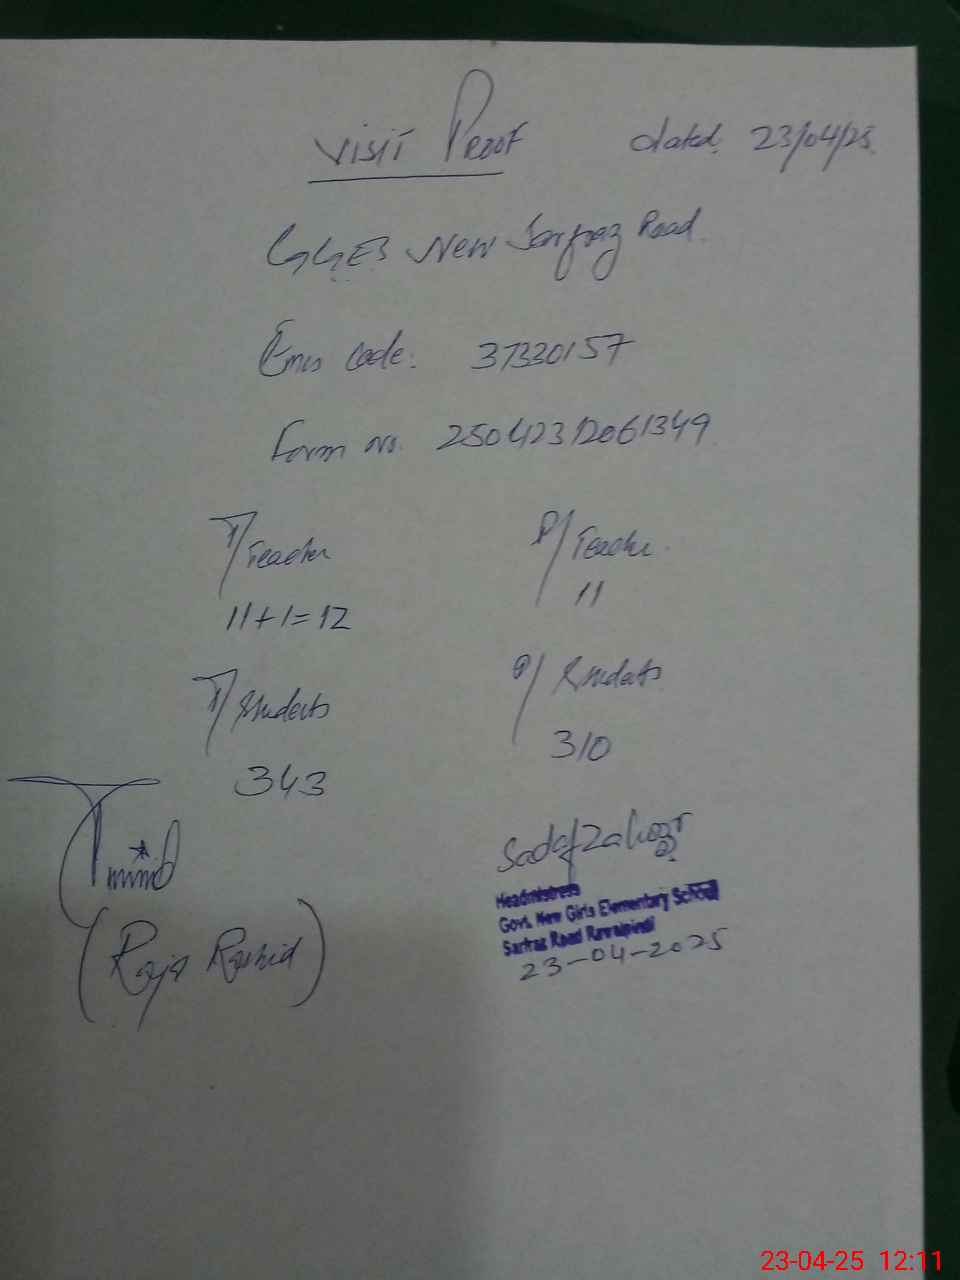 Visit Proof dated. 23/04/25.
GGES New Sarfraz Road.
Emis Code: 37330157
Form no. 25042312061349
T/Teacher P/Teacher.
11+1=12 11
T/Students P/Students
343 310
Sadaf Zahoor
Headmistress
Govt. New Girls Elementary School
Sarfraz Road Rawalpindi
23-04-2025
(Raja Rashid)
23-04-25 12:11